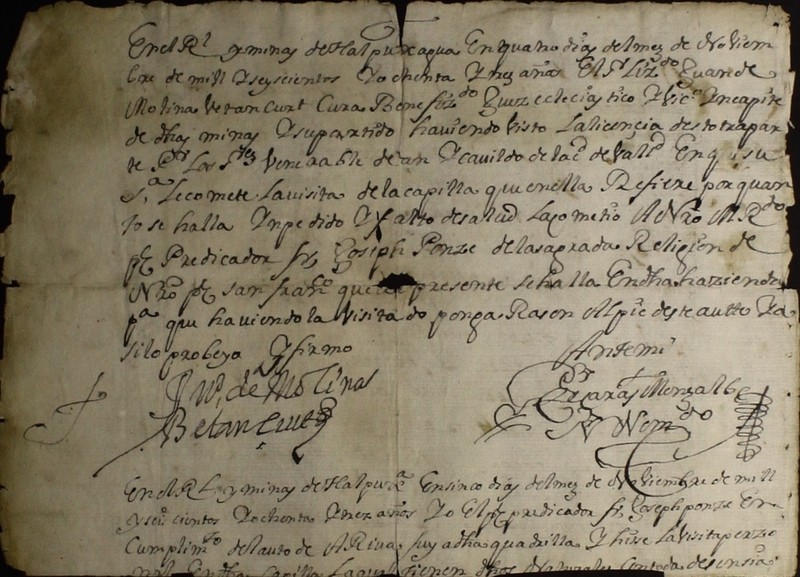 En el Rl y minas de tlalpuxagua En quatro dias del mez de Noviem
bre de mill Y seyscientos Y ochenta Y trez años El Sr Lizdo Juan de
Molina Vetancurt Cura Benefizdo Juez eclesiastico Y Vico Yncapite
de dhas minas Y su partido haviendo Visto La licencia desta otra par
te Pr Los Sres Venerable dean Y cavildo de la Cd de Valld En q su
Sa Le comete La visita de la capilla que en ella Refiere por quan
to se halla Ynpedido Y falto de salud La cometio A Nro M Rdo
pe Predicador fr Joseph Ponze de la sagrada Religion de
Nro pe san franco que al presente se halla En dha hazienda
pa que haviendola Visitado ponga Rason Al pie deste autto Y a
si lo probeyo Y firmo
Juo de Molina
Betancurt
Ante mi
Nomdo
En el Rl y minas de tlalpuxa En sinco dias del mez de Noviembre de mill
y seiscientos Y ochenta Y trez años Yo El pe predicador fr Joseph ponze En
Cumplimto del auto de A Riva fuy a dha quadrilla Y hise La Visita
En dha Capilla La qual tienen dhos Naturales Con toda desensia